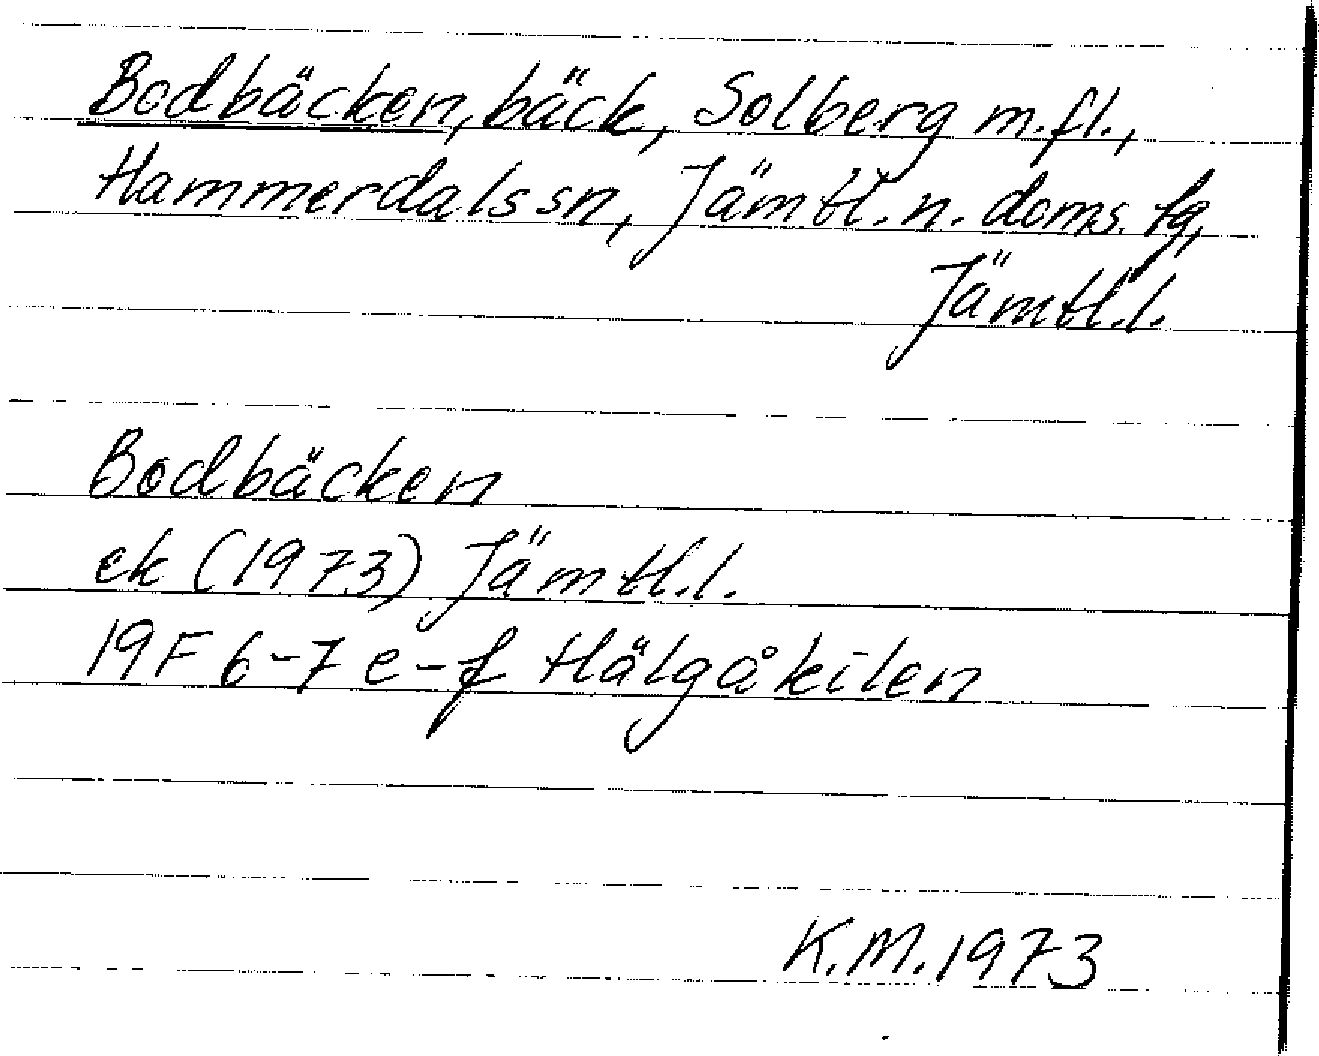 Bodbäcken, bäck, Solberg m.fl.,
Hammerdals sn, Jämtl. n. doms. fg,
Jämtl.l.
Bodbäcken
ek (1973) Jämtl.l.
19F 6-7 e-f Hälgåkilen
K.M. 1973